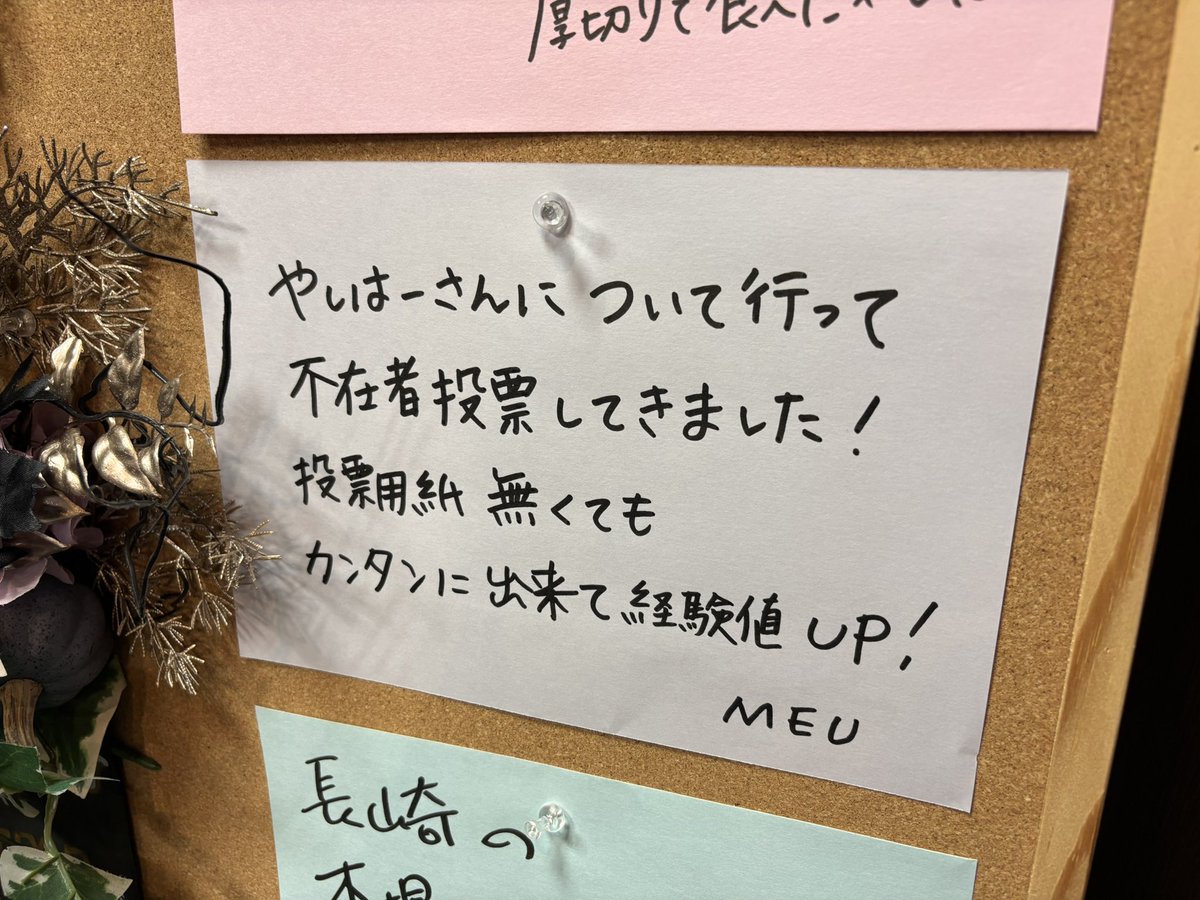 厚切りで
やしはーさんに ついて行って
不在者投票してきました!
投票用紙 無くても
カンタンに 出来て経験値 UP!
MEU
長崎の